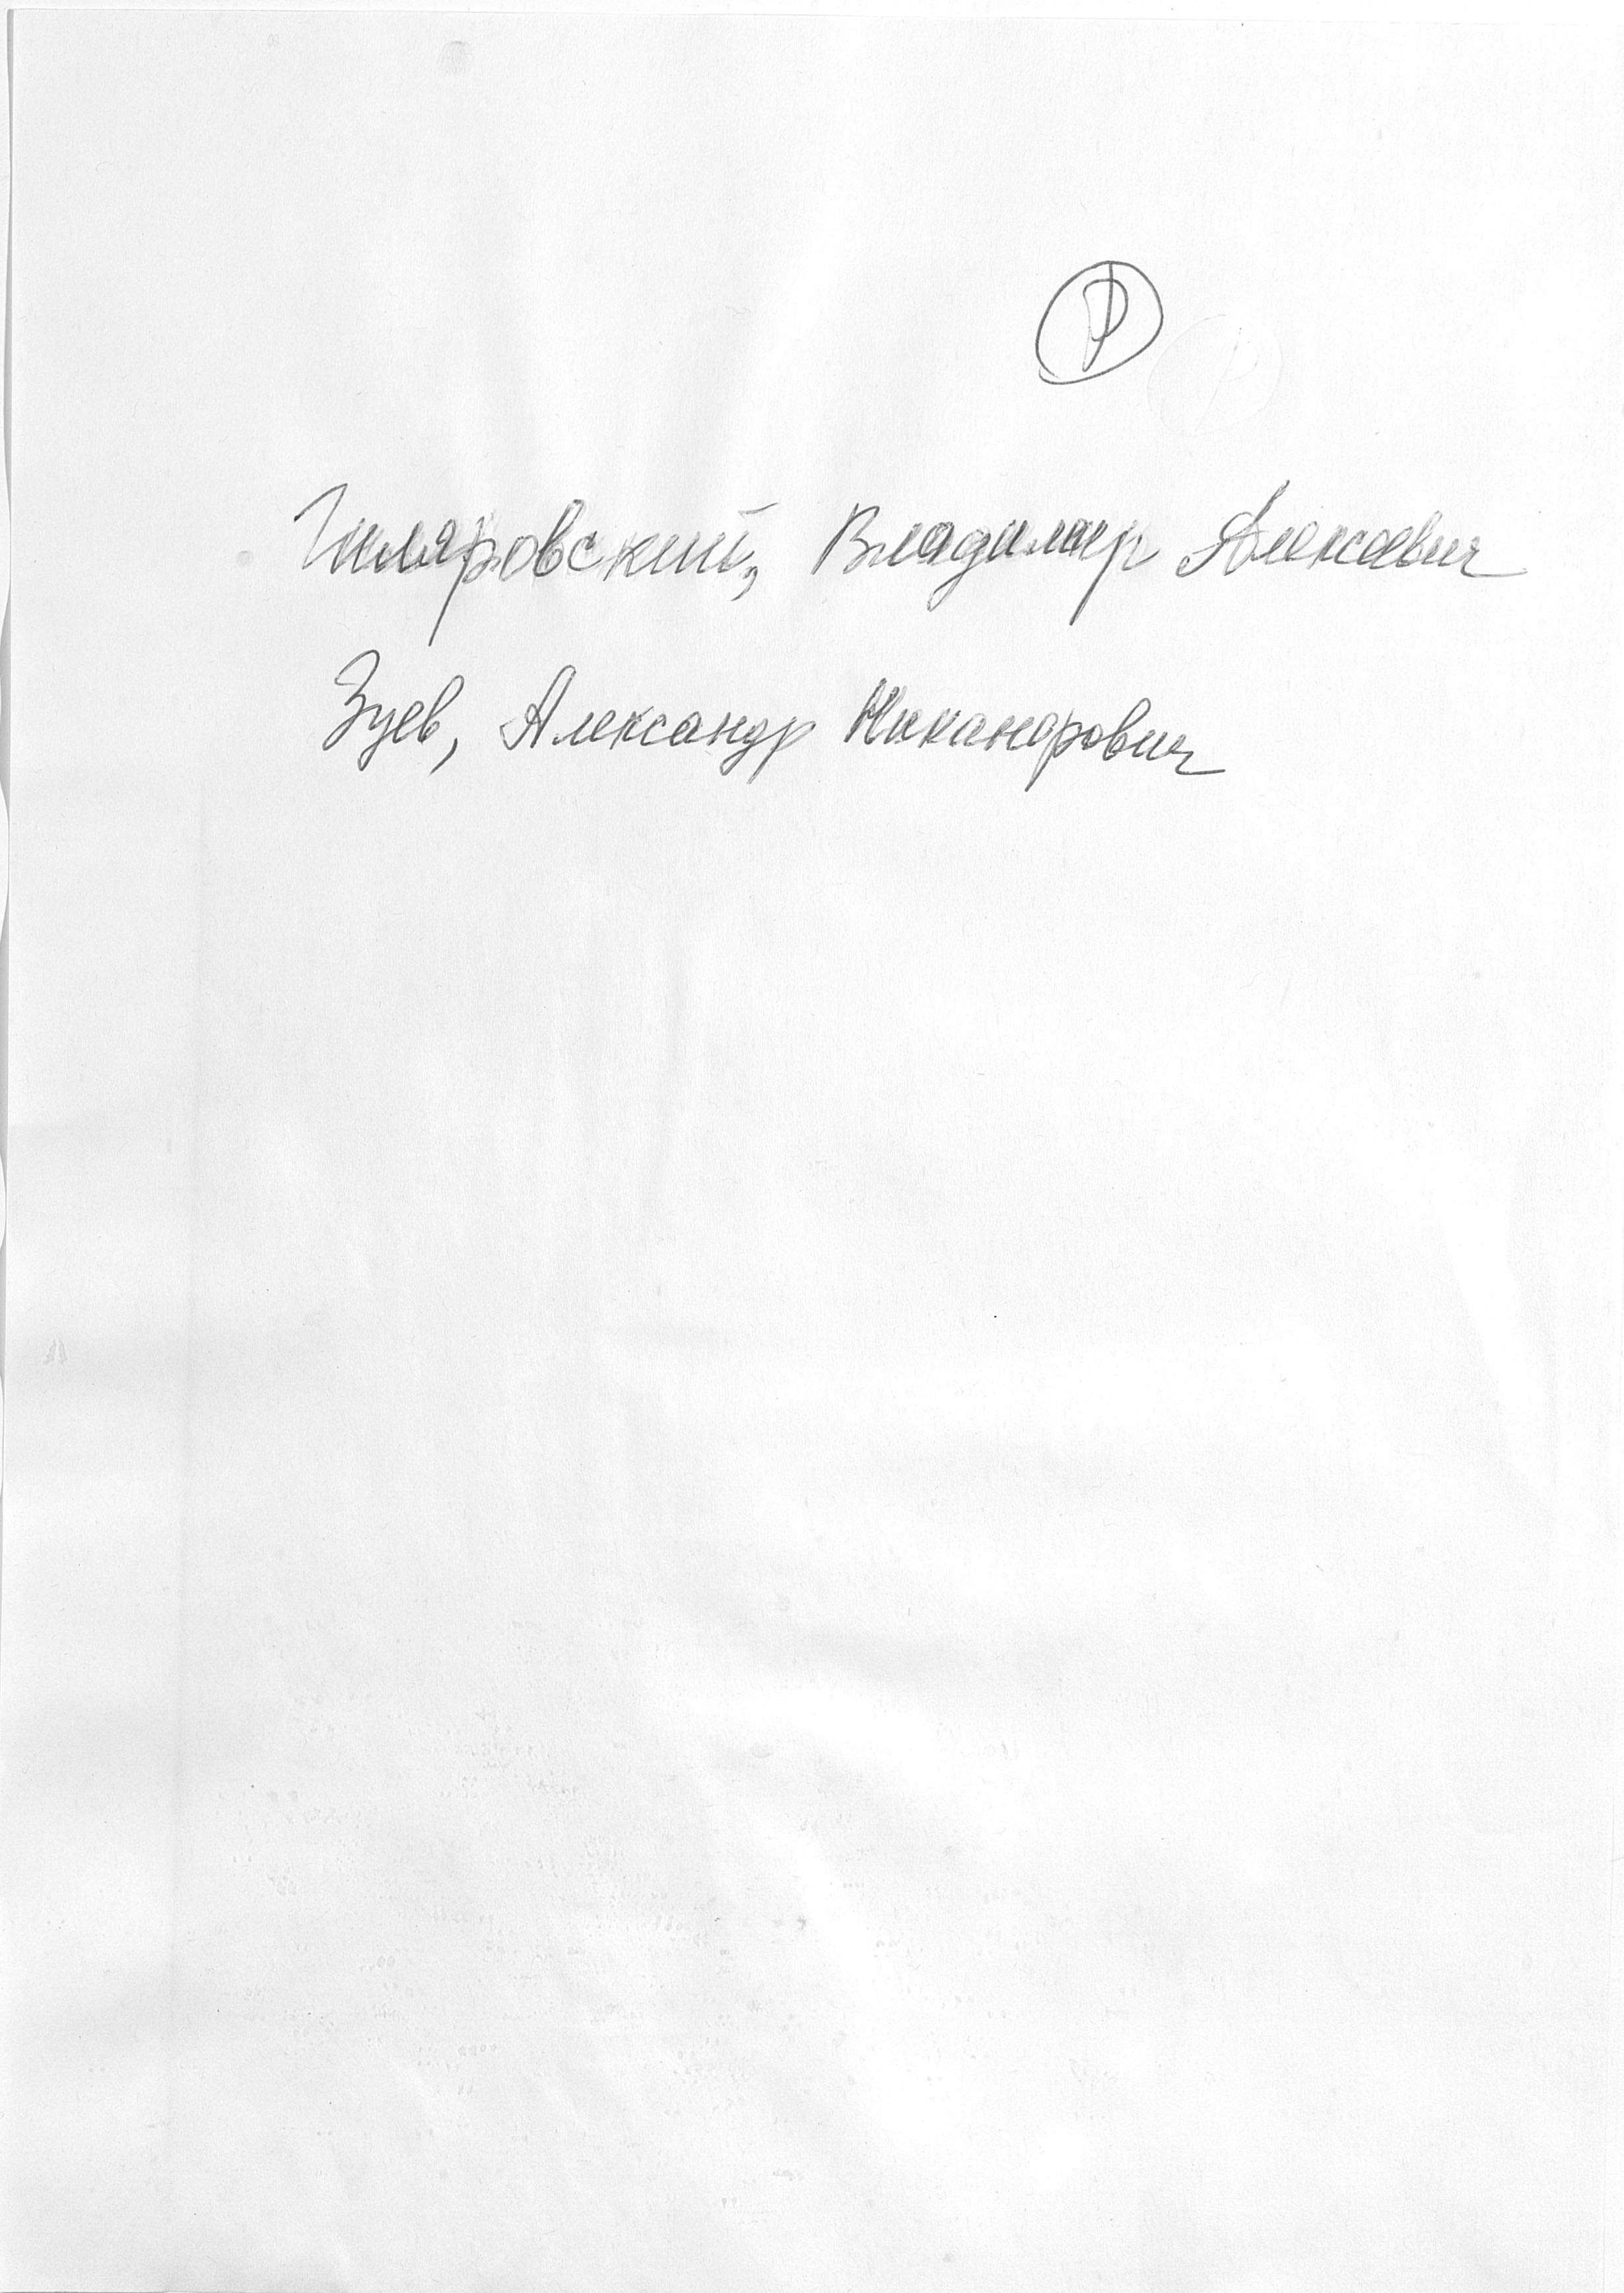 Р
Гиляровский, Владимир Алексевич
Зуев, Александр Никандрович